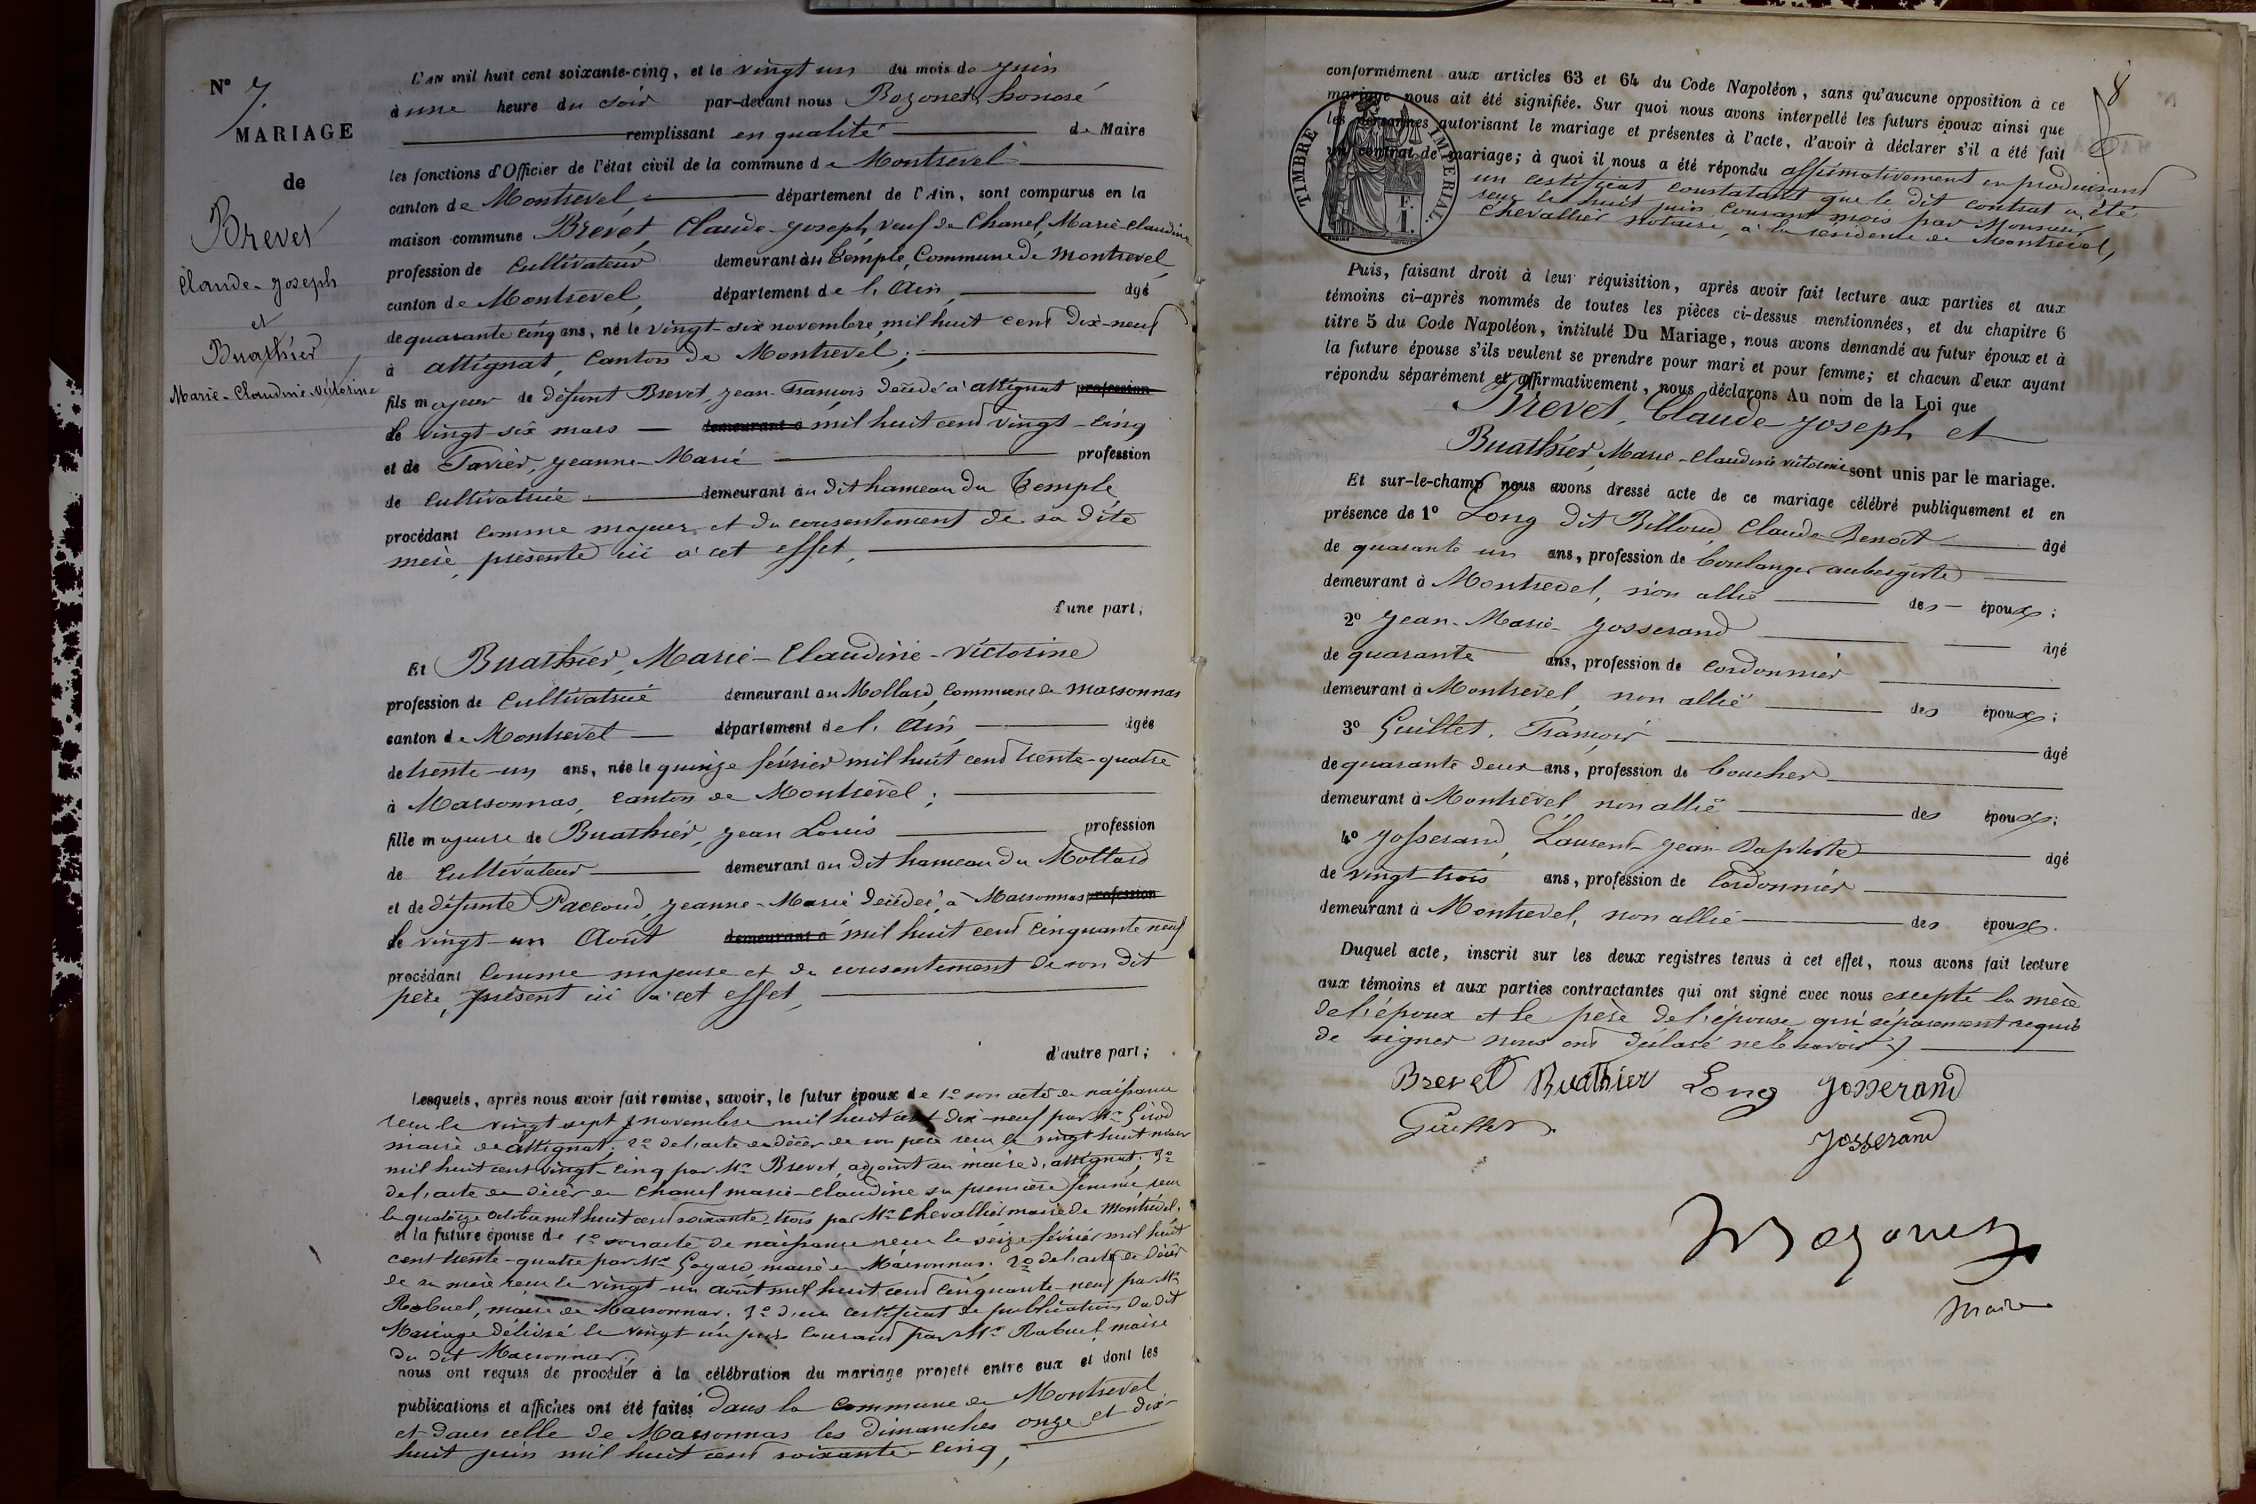 N° 7.
MARIAGE
de
Brevet
Claude-Joseph
et
Buathier
Marie-Claudine-Victorine
L'AN mil huit cent soixante-cinq, et le vingt un du mois de juin
à une heure du soir par-devant nous Bozonet, honoré
remplissant en qualité de Maire
les fonctions d'Officier de l'état civil de la commune de Montrevel
canton de Montrevel, département de l'Ain, sont comparus en la
maison commune Brevet, Claude-Joseph, veuf de Chanel, Marie-Claudine
profession de Cultivateur demeurant au Temple, Commune de Montrevel,
canton de Montrevel, département de l'Ain, âgé
de quarante cinq ans, né le vingt-six novembre mil huit cent dix-neuf
à attignat, Canton de Montrevel;
fils majeur de défunt Brevet, Jean-François décédé à attignat profession
le vingt-six mars demeurant à mil huit cent vingt-cinq
et de Tavier, Jeanne-Marie profession
de Cultivatrice demeurant au dit hameau du Temple,
procédant comme majeur et du consentement de sa dite
mère, présente ici à cet effet,
d'une part;
Et Buathier, Marie-Claudine-Victorine
profession de Cultivatrice demeurant au Mollard, Commune de Marsonnas
canton de Montrevel département de l'Ain, âgée
de trente-un ans, née le quinze février mil huit cent trente-quatre
à Marsonnas, canton de Montrevel;
fille majeure de Buathier, Jean Louis profession
de Cultivateur demeurant au dit hameau du Mollard
et de défunte Paccoud, Jeanne-Marie décédée, à Marsonnas profession
le vingt-un Août demeurant à mil huit cent cinquante neuf
procédant comme majeure et du consentement de son dit
père, présent ici à cet effet,
d'autre part;
Lesquels, après nous avoir fait remise, savoir, le futur époux de 1° son acte de naissance
reçu le vingt sept novembre mil huit cent dix-neuf par Mr Girod
maire de attignat, 2° de l'acte de décès de son père reçu le vingt huit mars
mil huit cent vingt-cinq par Mr Brevet, adjoint au maire d'attignat; 3°
de l'acte de décès de Chanel marie-claudine sa première femme, reçu
le quatorze octobre mil huit cent soixante-trois par Mr Chevallier maire de Montrevel;
et la future épouse de 1° son acte de naissance reçu le seize février mil huit
cent trente-quatre par Mr Goyard maire de Marsonnas; 2° de l'acte de décès
de sa mère reçu le vingt-un août mil huit cent cinquante-neuf par Mr
Rabuel, maire de Marsonnas; 3° d'un certificat de publication du dit
Mariage délivré le vingt-un juin courant par Mr Rabuel maire
du dit Marsonnas;
nous ont requis de procéder à la célébration du mariage projeté entre eux et dont les
publications et affiches ont été faites dans la Commune de Montrevel
et dans celle de Marsonnas les dimanches onze et dix-
huit juin mil huit cent soixante-cinq,
8
conformément aux articles 63 et 64 du Code Napoléon, sans qu'aucune opposition à ce
mariage nous ait été signifiée. Sur quoi nous avons interpellé les futurs époux ainsi que
les personnes autorisant le mariage et présentes à l'acte, d'avoir à déclarer s'il a été fait
un contrat de mariage; à quoi il nous a été répondu affirmativement en produisant
un certificat constatant que le dit contrat a été
reçu le huit juin courant mois par Monsieur
Chevallier notaire, à la résidence de Montrevel,
TIMBRE IMPÉRIAL.
Puis, faisant droit à leur réquisition, après avoir fait lecture aux parties et aux
témoins ci-après nommés de toutes les pièces ci-dessus mentionnées, et du chapitre 6
titre 5 du Code Napoléon, intitulé Du Mariage, nous avons demandé au futur époux et à
la future épouse s'ils veulent se prendre pour mari et pour femme; et chacun d'eux ayant
répondu séparément et affirmativement, nous déclarons Au nom de la Loi que
Brevet, Claude-Joseph et
Buathier, Marie-Claudine victorine sont unis par le mariage.
Et sur-le-champ nous avons dressé acte de ce mariage célébré publiquement et en
présence de 1° Long dit Billoud, Claude Benoit âgé
de quarante un ans, profession de boulanger aubergiste
demeurant à Montrevel, non allié des époux;
2° Jean-Marie Josserand âgé
de quarante ans, profession de cordonnier
demeurant à Montrevel, non allié des époux;
3° Guillet, François âgé
de quarante deux ans, profession de boucher
demeurant à Montrevel, non allié des époux;
4° Josserand, Laurent Jean Baptiste âgé
de vingt-trois ans, profession de Cordonnier
demeurant à Montrevel, non allié des époux.
Duquel acte, inscrit sur les deux registres tenus à cet effet, nous avons fait lecture
aux témoins et aux parties contractantes qui ont signé avec nous excepté la mère
de l'époux et le père de l'épouse qui séparement requis
de signer nous ont déclaré ne le savoir
Brevet Buathier Long Josserand
Guillet
Josserand
Bozonet
Maire